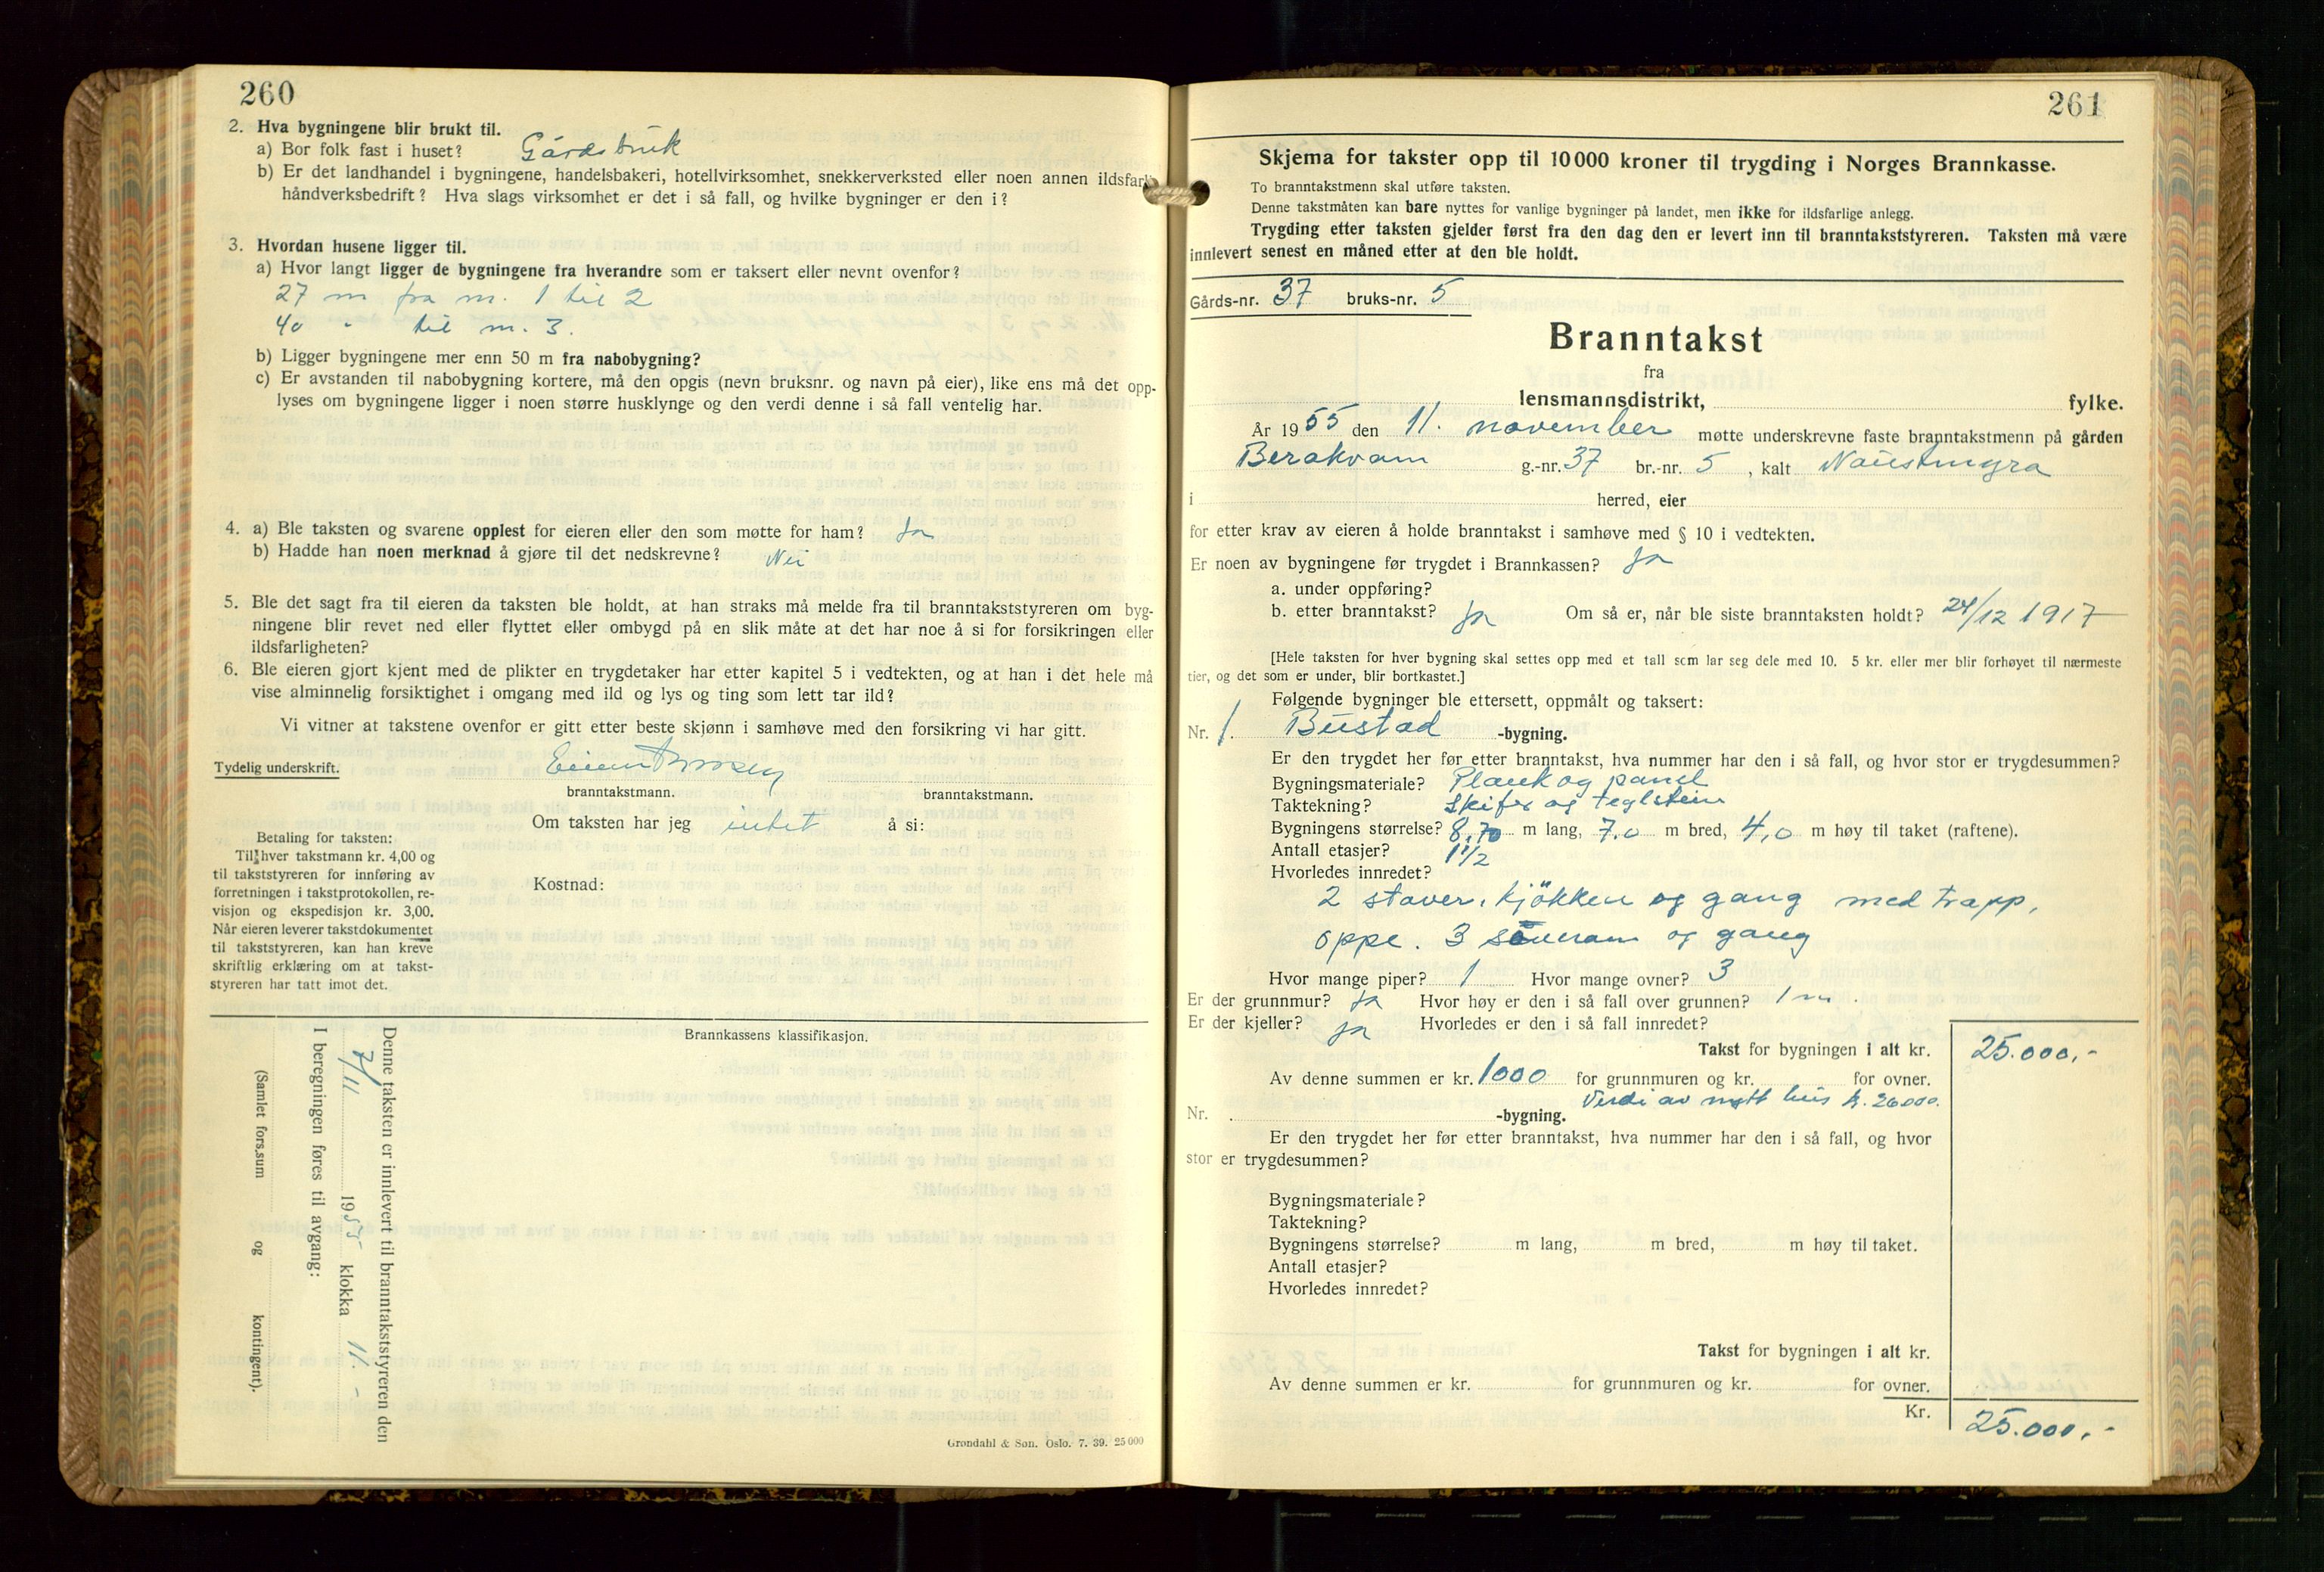 260
2. Hva bygningene blir brukt til.
a) Bor folk fast i huset? Gårdsbruk
b) Er det landhandel i bygningene, handelsbakeri, hotellvirksomhet, snekkerverksted eller noen annen ildsfarl
håndverksbedrift? Hva slags virksomhet er det i så fall, og hvilke bygninger er den i?
3. Hvordan husene ligger til.
a) Hvor langt ligger de bygningene fra hverandre som er taksert eller nevnt ovenfor?
27 m fra m. 1 til 2
40 " til m. 3.
b) Ligger bygningene mer enn 50 m fra nabobygning?
c) Er avstanden til nabobygning kortere, må den opgis (nevn bruksnr. og navn på eier), like ens må det opp-
lyses om bygningene ligger i noen større husklynge og den verdi denne i så fall ventelig har.
4. a) Ble taksten og svarene opplest for eieren eller den som møtte for ham? Ja
b) Hadde han noen merknad å gjøre til det nedskrevne? Nei
5. Ble det sagt fra til eieren da taksten ble holdt, at han straks må melde fra til branntakststyreren om byg-
ningene blir revet ned eller flyttet eller ombygd på en slik måte at det har noe å si for forsikringen eller
ildsfarligheten?
6. Ble eieren gjort kjent med de plikter en trygdetaker har etter kapitel 5 i vedtekten, og at han i det hele må
vise alminnelig forsiktighet i omgang med ild og lys og ting som lett tar ild?
Vi vitner at takstene ovenfor er gitt etter beste skjønn i samhøve med den forsikring vi har gitt.
Tydelig underskrift.
branntakstmann. branntakstmann.
Om taksten har jeg intet å si:
Betaling for taksten:
Til hver takstmann kr. 4,00 og
til takststyreren for innføring av
forretningen i takstprotokollen, re-
visjon og ekspedisjon kr. 3,00.
Når eieren leverer takstdokumentet
til takststyreren, kan han kreve
skriftlig erklæring om at takst-
styreren har tatt imot det.
Kostnad:
Brannkassens klassifikasjon.
Denne taksten er innlevert til branntakststyreren den
7/11 1955 klokka 11.-
I beregningen føres til avgang:
(Samlet fors.sum og kontingent).
Grøndahl & Søn. Oslo. 7. 39. 25 000
261
Skjema for takster opp til 10 000 kroner til trygding i Norges Brannkasse.
To branntakstmenn skal utføre taksten.
Denne takstmåten kan bare nyttes for vanlige bygninger på landet, men ikke for ildsfarlige anlegg.
Trygding etter taksten gjelder først fra den dag den er levert inn til branntakststyreren. Taksten må være
innlevert senest en måned etter at den ble holdt.
Gårds-nr. 37 bruks-nr. 5
Branntakst
fra
lensmannsdistrikt, fylke.
År 1955 den 11. november møtte underskrevne faste branntakstmenn på gården
Berakvam g.-nr. 37 br.-nr. 5, kalt Naustmyra
i herred, eier
for etter krav av eieren å holde branntakst i samhøve med § 10 i vedtekten.
Er noen av bygningene før trygdet i Brannkassen? Ja
a. under oppføring?
b. etter branntakst? Ja Om så er, når ble siste branntaksten holdt? 24/12 1917
[Hele taksten for hver bygning skal settes opp med et tall som lar seg dele med 10. 5 kr. eller mer blir forhøyet til nærmeste
tier, og det som er under, blir bortkastet.]
Følgende bygninger ble ettersett, oppmålt og taksert:
Nr. 1. Bustad -bygning.
Er den trygdet her før etter branntakst, hva nummer har den i så fall, og hvor stor er trygdesummen?
Bygningsmateriale? Plank og panel
Taktekning? Skifer og teglstein
Bygningens størrelse? 8,70 m lang, 7,0 m bred, 4,0 m høy til taket (raftene).
Antall etasjer? 1 1/2
Hvorledes innredet?
2 stover, kjökken og gang med trapp,
oppe. 3 soverom og gang
Hvor mange piper? 1 Hvor mange ovner? 3
Er der grunnmur? ja Hvor høy er den i så fall over grunnen? 1 m.
Er der kjeller? ja Hvorledes er den i så fall innredet?
Takst for bygningen i alt kr. 25.000,-
Av denne summen er kr. 1000 for grunnmuren og kr. for ovner.
Verdi av nytt hus kr. 26000.
Nr. -bygning.
Er den trygdet her før etter branntakst, hva nummer har den i så fall, og hvor
stor er trygdesummen?
Bygningsmateriale?
Taktekning?
Bygningens størrelse? m lang, m bred, m høy til taket.
Antall etasjer?
Hvorledes innredet?
Takst for bygningen i alt kr.
Av denne summen er kr. for grunnmuren og kr. for ovner.
Kr. 25.000,-